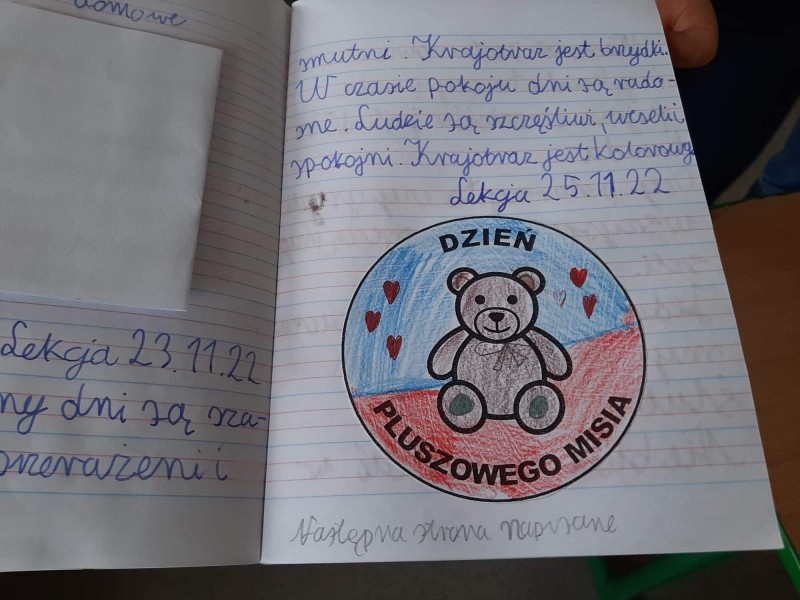 domowe
Lekcja 23.11.22
ny dni są sza-
przerażeni i
smutni. Krajobraz jest brzydki.
W czasie pokoju dni są rado-
sne. Ludzie są szczęśliwi, weseli i
spokojni. Krajobraz jest kolorowy
Lekcja 25.11.22
DZIEŃ
PLUSZOWEGO MISIA
Następna strona napisane